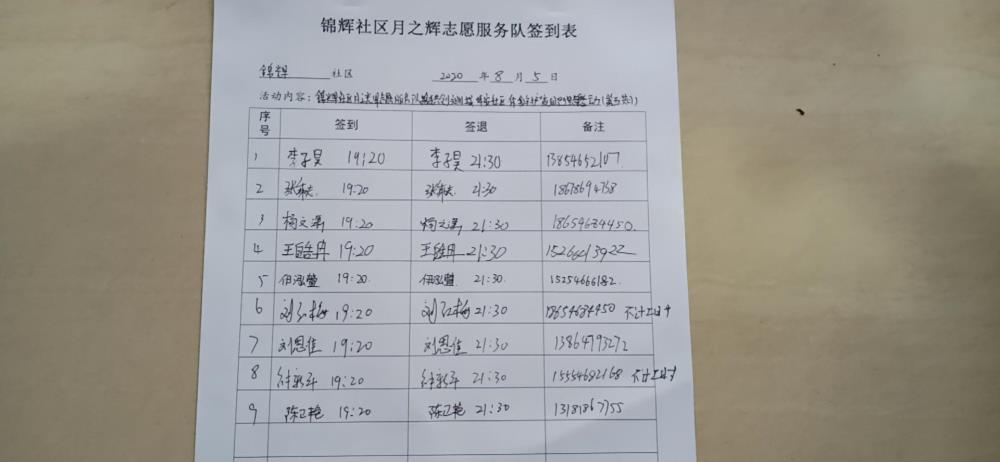 锦辉社区月之辉志愿服务队签到表
锦辉 社区 2020 年 8 月 5 日
活动内容:
序号 签到 签退 备注
1 李子昊 19:20 李子昊 21:30 13854652107
2 19:20 21:30 18678694768
3 杨文潇 19:20 杨文潇 21:30 18654684450
4 王皓冉 19:20 王皓冉 21:30
5 19:20 21:30 15254666182
6 刘红梅 19:20 刘红梅 21:30 18654684950 不计工时
7 刘恩佳 19:20 刘恩佳 21:30 13864793272
8 19:20 21:30 15554682168 不计工时
9 陈卫艳 19:20 陈卫艳 21:30 13181867755